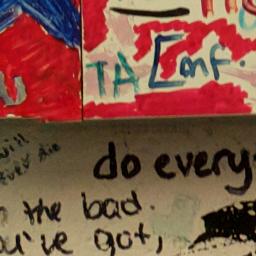 TA [mf.
will
ever die
do every
the bad.
ou've got,